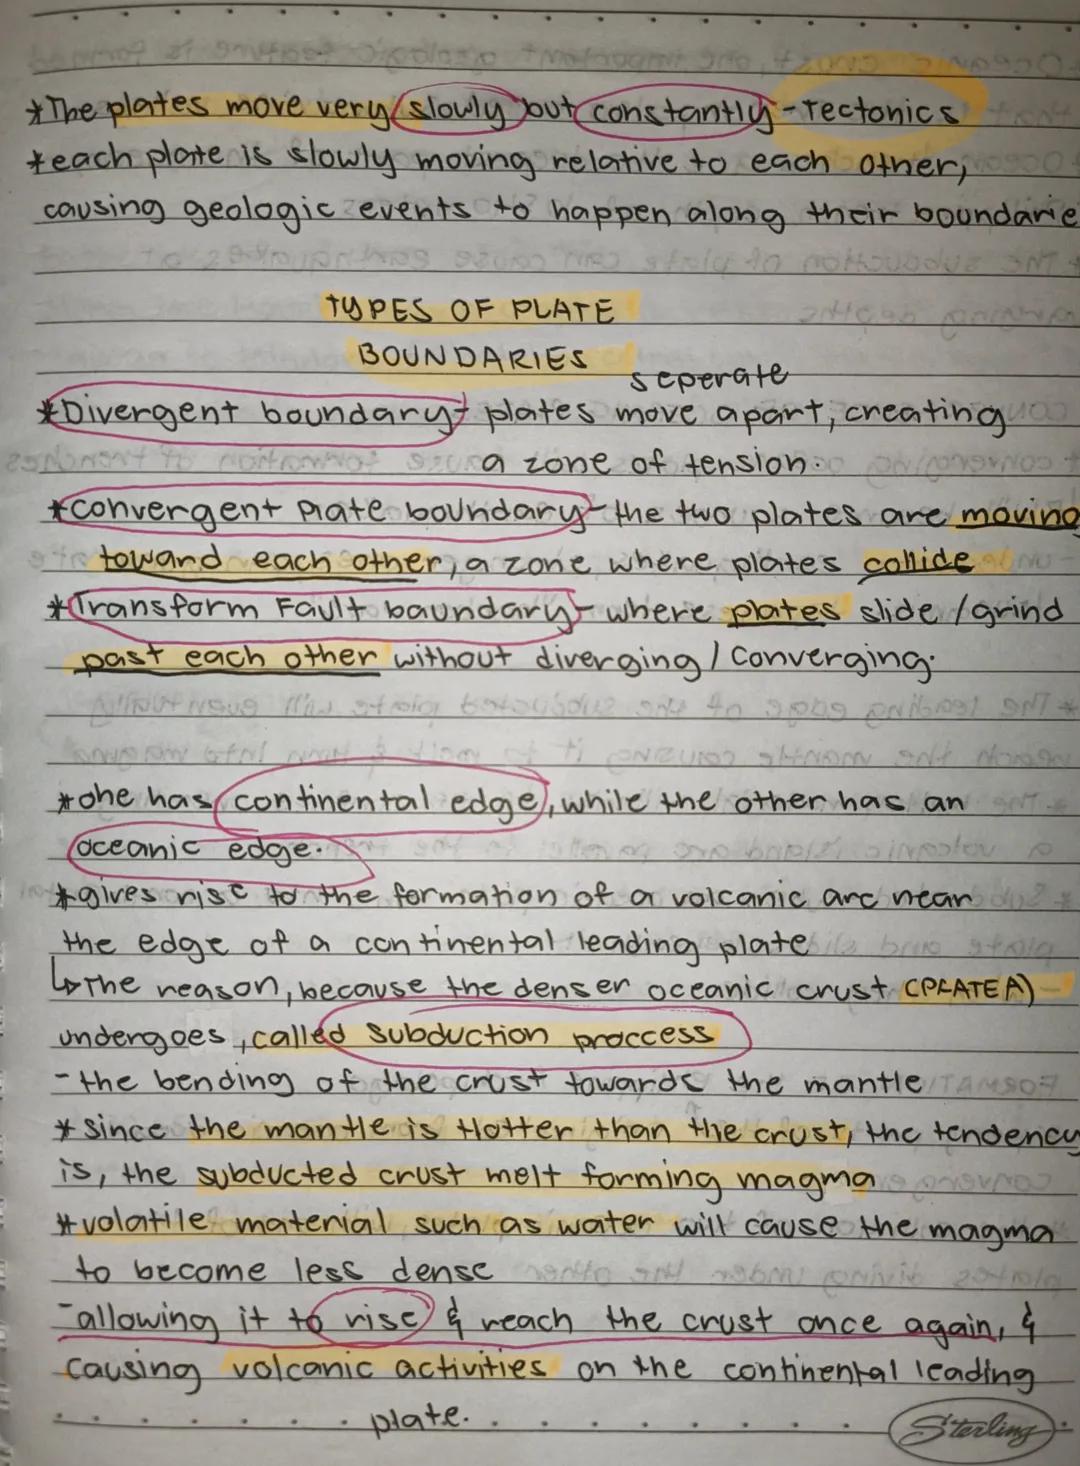 *The plates move very slowly but constantly - Tectonics
*each plate is slowly moving relative to each other,
causing geologic events to happen along their boundarie
TYPES OF PLATE
BOUNDARIES
seperate
*Divergent boundary - plates move apart, creating
a zone of tension.
*convergent Plate boundary - the two plates are moving
toward each other, a zone where plates collide
*Transform Fault baundary - where plates slide / grind
past each other without diverging / converging.
*one has continental edge, while the other has an
oceanic edge.
*gives rise to the formation of a volcanic arc near
the edge of a continental leading plate
↳The reason, because the denser oceanic crust (PLATE A)
undergoes, called subduction proccess
- the bending of the crust towards the mantle
*since the mantle is Hotter than the crust, the tendency
is, the subducted crust melt forming magma
*volatile material such as water will cause the magma
to become less dense
- allowing it to rise & reach the crust once again, &
causing volcanic activities on the continental leading
plate.
Sterling